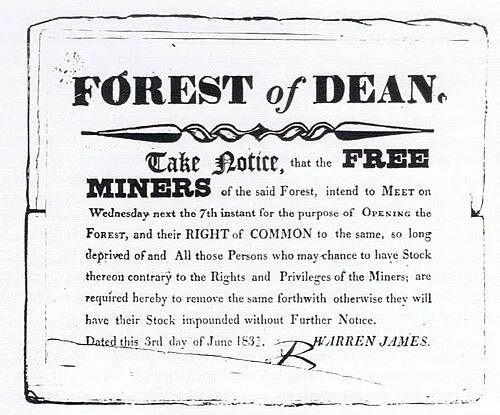 FOREST of DEAN.
Take Notice, that the FREE
MINERS of the said Forest, intend to MEET on
Wednesday next the 7th instant for the purpose of OPENING the
FOREST, and their RIGHT of COMMON to the same, so long
deprived of and All those Persons who may chance to have Stock
thereon contrary to the Rights and Privileges of the Miners; are
required hereby to remove the same forthwith otherwise they will
have their Stock impounded without Further Notice.
Dated this 3rd day of June 1831. WARREN JAMES.